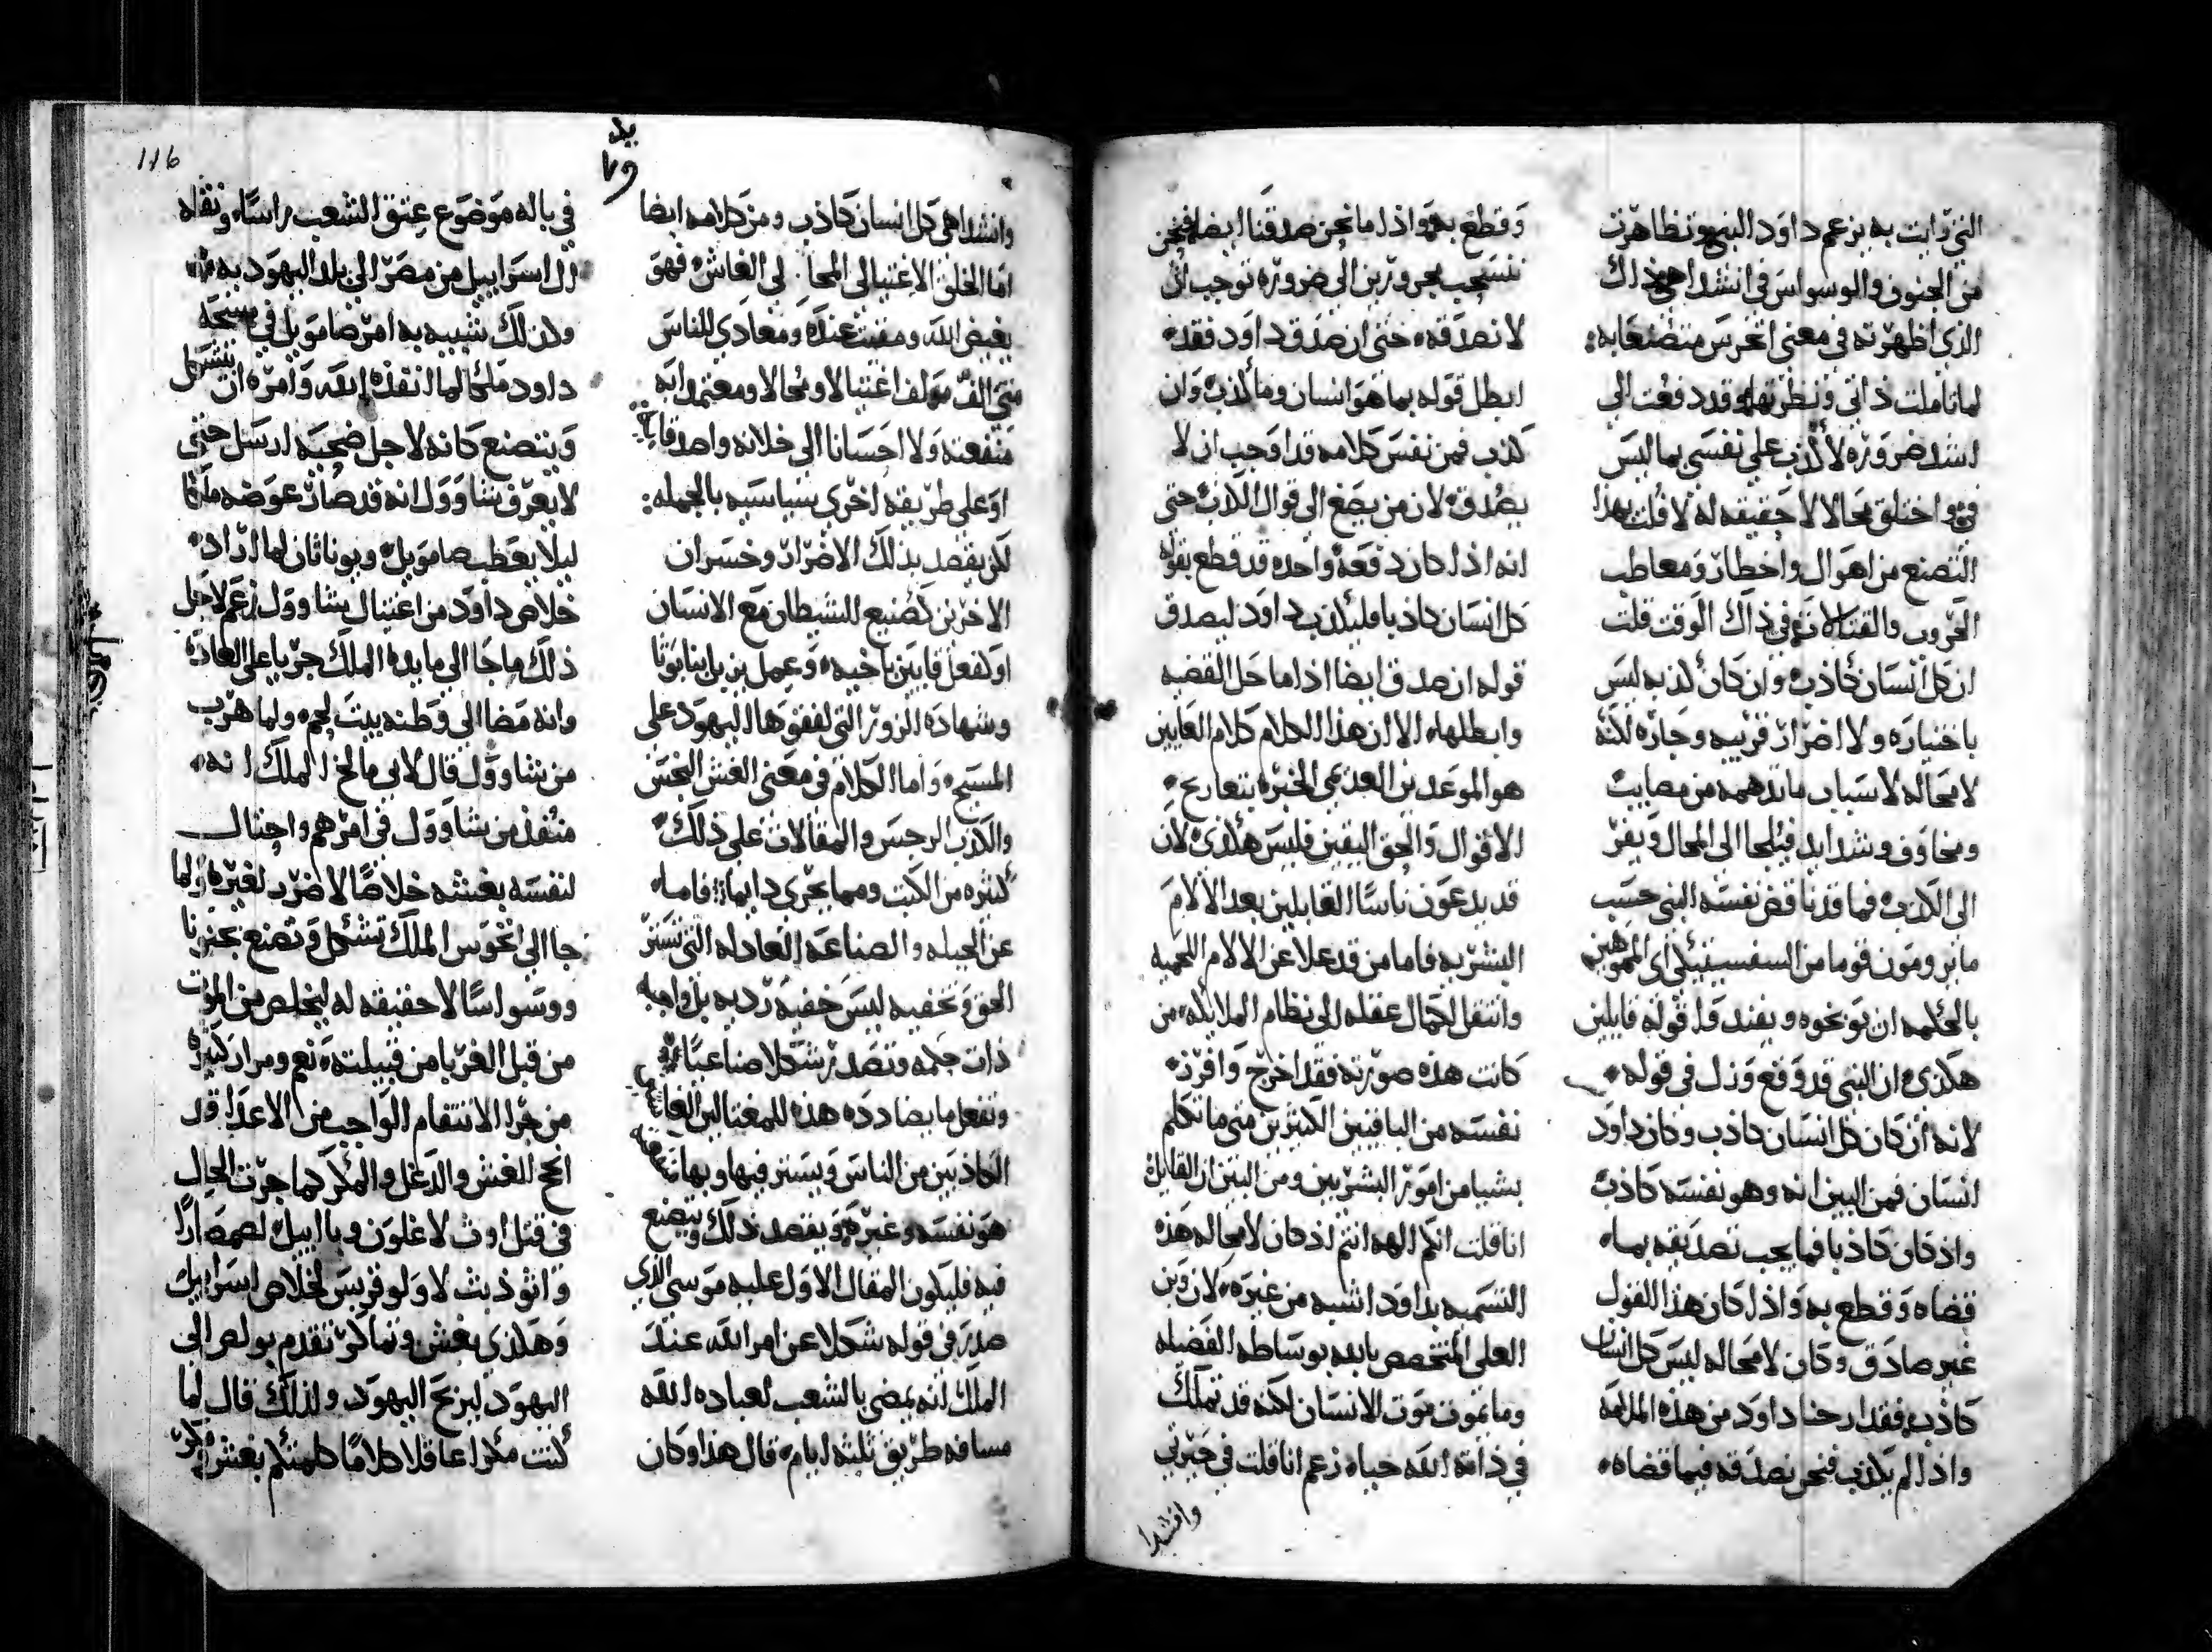 التي واتت به بزعم داود النبي وتظاهرت
من الجنون والوسواس في انشداهي ذلك
الذي اظهرته في معنى اتخرس متصنعا به:
لما تاملت ذاتي ونظرتها وقد دفعت الي
اشد ضروره لأكذب علي نفسي بما ليس
في واختلق محالا لا حقيقه له لا قلت بهذا
التصنع من اهوال واخطار ومعاطب
الحروب والقتال في ذاك الوقت قلت
ان كل انسان كاذب وان كان كذبه ليس
باختياره ولا اضرار قريبه وجاره لكنه
لا محاله لاسباب ما تدهمه من مصايب
ومخاوف وشدايد فيلجا الى المحال ويفر
الى الكذب فما قد ناقض نفسه النبي حسب
ما يرومون قوما من السفسيتيكي اى المموهين
بالحكمه ان يوبخوه ويفندوا قوله قايلين
هكذى ان النبي قد وقع وزل في قوله
لانه ان كان كل انسان كاذب وكان داود
انسان فمن البين انه وهو نفسه كاذب
واذ كان كاذبا فما يجب تصديقه بما
قضاه وقطع به واذا كان هذا القول
غير صادق وكان لا محاله ليس كل انسان
كاذب فقد ارحنا داود من هذه الملامه
واذا لم يكذب فنحن نصدقه فيما قضاه
وقطع به واذا ما نحن صدقنا ايضا فنحن
ننسحب مجرورين الى ضروره توجب ان
لا نصدقه حتى ان صدق داود فقد
ابطل قوله بما هو انسان وما كذب وان
كذب فمن نفس كلامه قد اوجب ان لا
يصدق لان من يصغ الى قول الكاذب حتى
انه اذا كان دفعة واحده قد قطع بقوله
كل انسان كاذبا فليكذب داود ليصدق
قوله ان صدق ايضا اذا ما حل القضيه
وابطلها الا ان هذا الكلام كلام العابين
هو الموعدين العديمي الخبره بتعاريج
الاقوال والحق اليقين فليس هكذى لان
قد يدعون ناسا القابلين بعد الالام
البشريه فاما من قد علا عن الالام اللحميه
وانتقل لكمال عقله الى نظام الملايكه من
كانت هذه صورته فقد اخرج وافرز
نفسه من الباقيين الكثيرين متى ما تكلم
بشيا من امور البشريين ومن البين ان القايل
انا قلت انكم الهه انتم اذ كان لا محاله هذه
التسميه بداود اشبه من غيره لان وبن
العلي المتخصص بابنه بوساطه الفضيله
وما يموت موت الانسان لكنه قد تملك
في ذاته الله حياه زعم انا قلت في حيرتي
وانشدا
يد
116
وانشداهي كل انسان كاذب ومن كلامه ايضا
اما الخلق الاغتيالى المحالي الغاش فهو
بغيض الله ومقيت عنده ومعادي للناس
متي الف مولف اغتيالا ومحالا ومعتمدا به
منفعته ولا احسانا الى خلانه واصدقايه
او على طريقه اخرى سياسيه بالجمله:
لكن يقصد بذلك الاضرار وخسران
الاخرين كصنيع الشيطان مع الانسان
او كفعل قايين باخيه وعمل بزيابنا بوتا
وشهاده الزور التي لفقوها اليهود على
المسيح واما الكلام في معنى الغش النجس
والكذب الرجس والمقالات على ذلك
كثيره من الكتب ومما يجرى دايما: فاما
عن الحيله والصناعه العادله التي تستر
الحق وتخفيه ليس خفيه رديه بل واهبه
ذات حكمه وتصدر شكلا صناعيا
وتفعل ما يضادده هذه للمغتالين الغاشين
الكاذبين من الناس ويستر فيها وبها منفعه
هو نفسه وغيره ويقصد ذلك ويتصنع
فيه فليكون المقال الاول عليه موسي الذي
صدر في قوله شكلا عن امر الله عند
الملك انه يمضي بالشعب لعباده الله
مسافه طريق ثلثه ايام قال هذا وكان
في باله موضوع عتق الشعب راسا ونقله
ال اسراييل من مصر الي بلد اليهوديه
ولذلك شبيه به امر صامويل في مسحه
داود ملكا لما انقذه الله وامره ان يتشكل
ويتصنع كانه لاجل ضحيه ارسل حتى
لا يعرف شاوول انه قد صار عوضه ملكا
ليلا يعطب صامويل ويوناثان لما اراد
خلاص داود من اغتيال شاوول زعم لاجل
ذلك ما جا الى مايده الملك جريا على العاده
وانه مضا الي وطنه بيت لحم ولما هرب
من شاوول قال لابي مالخ الملك انه
منفذ من شاوول في امر هم واحتال
لنفسه بغشه خلاصا لا ضرر لغيره ولما
جا الى انخوس الملك تشكل وتصنع بجنونا
ووسواسا لا حقيقه له ليخلص من الموت
من قبل الغربا من قبيلته نعم ومرار كثيره
من جرا الانتقام الواجب من الاعدا قد
انجح الغش والدغل والمكر كما جرت الحال
في قتل اوث لاغلون وياابيل لصمصارا
واثوذيث لاولوفرنس لخلاص اسراييل
وهكذى بغش وتماكر تقدم بولص الى
اليهود ليربح اليهود ولذلك قال لما
كنت مكرا عاقلا كلاما كلمتكم بغش ومكر